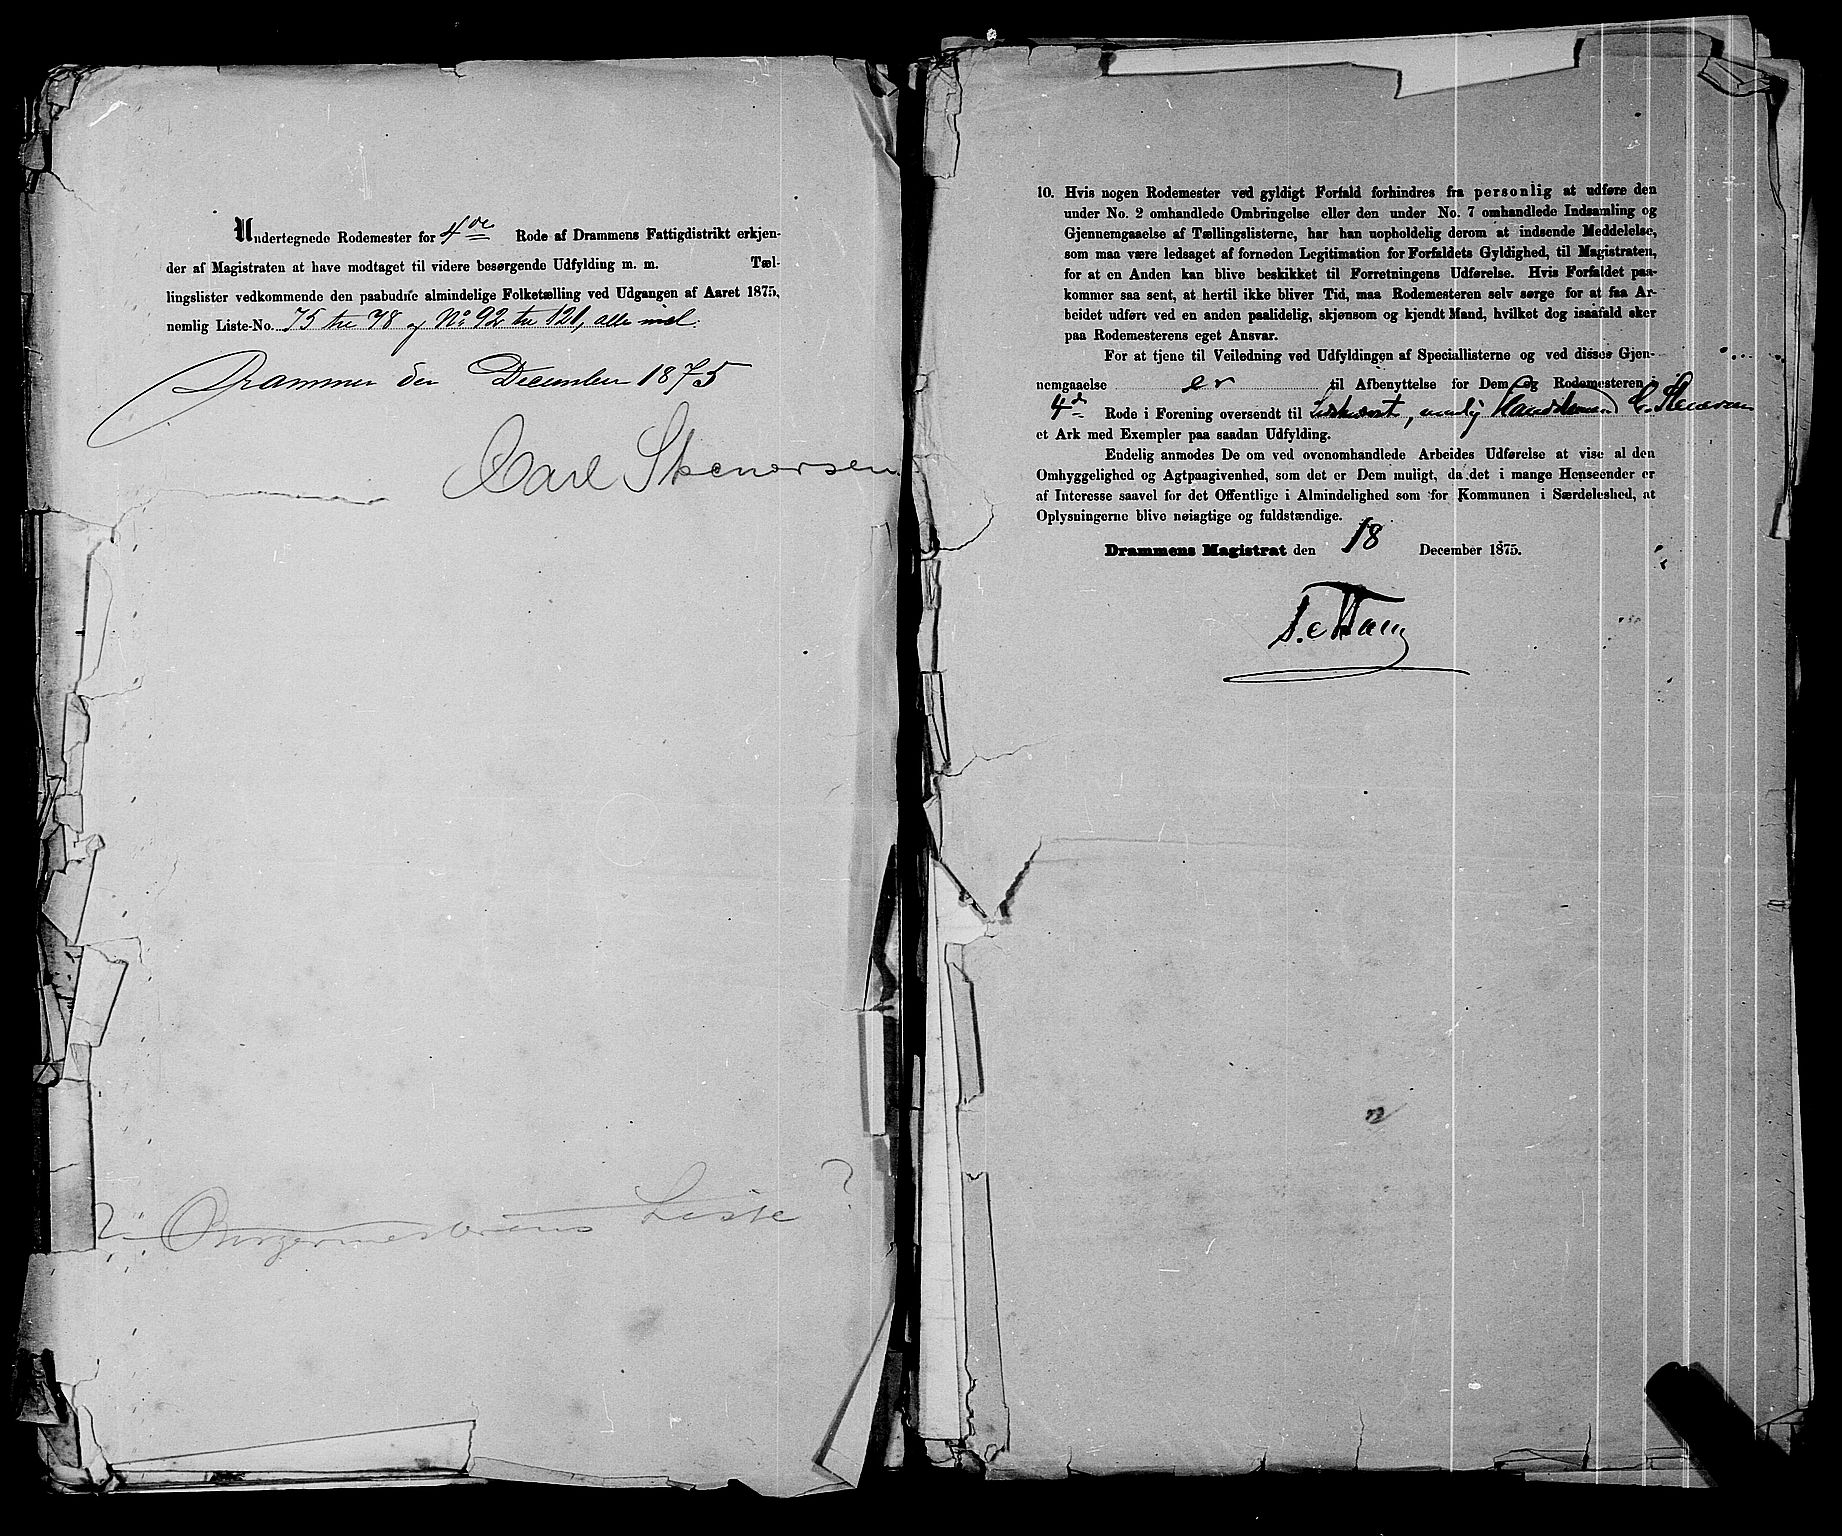 Undertegnede Rodemester for 4de Rode af Drammens Fattigdistrikt erkjen-
der af Magistraten at have modtaget til videre besørgende Udfylding m. m. Tæl-
lingslister vedkommende den paabudne almindelige Folketælling ved Udgangen af Aaret 1875,
nemlig Liste-No. 75 til 78 og No 92 til 121, alle incl.
Drammen den December 1875
Carl Stenersen
Borgermesterens Liste?
10. Hvis nogen Rodemester ved gyldigt Forfald forhindres fra personlig at udføre den
under No. 2 omhandlede Ombringelse eller den under No. 7 omhandlede Indsamling og
Gjennemgaaelse af Tællingslisterne, har han uopholdelig derom at indsende Meddelelse,
som maa være ledsaget af fornøden Legitimation for Forfaldets Gyldighed, til Magistraten,
for at en Anden kan blive beskikket til Forretningens Udførelse. Hvis Forfaldet paa-
kommer saa sent, at hertil ikke bliver Tid, maa Rodemesteren selv sørge for at faa Ar-
beidet udført ved en anden paalidelig, skjønsom og kjendt Mand, hvilket dog isaafald sker
paa Rodemesterens eget Ansvar.
For at tjene til Veiledning ved Udfyldingen af Speciallisterne og ved disses Gjen-
nemgaaelse er til Afbenyttelse for Dem og Rodemesteren i
4de Rode i Forening oversendt til Sidstnævnte, nemlig Handelsmand C. Stenersen
et Ark med Exempler paa saadan Udfylding.
Endelig anmodes De om ved ovenomhandlede Arbeides Udførelse at vise al den
Omhyggelighed og Agtpaagivenhed, som det er Dem muligt, da det i mange Henseender er
af Interesse saavel for det Offentlige i Almindelighed som for Kommunen i Særdeleshed, at
Oplysningerne blive nøiagtige og fuldstændige.
Drammens Magistrat den 18 December 1875.